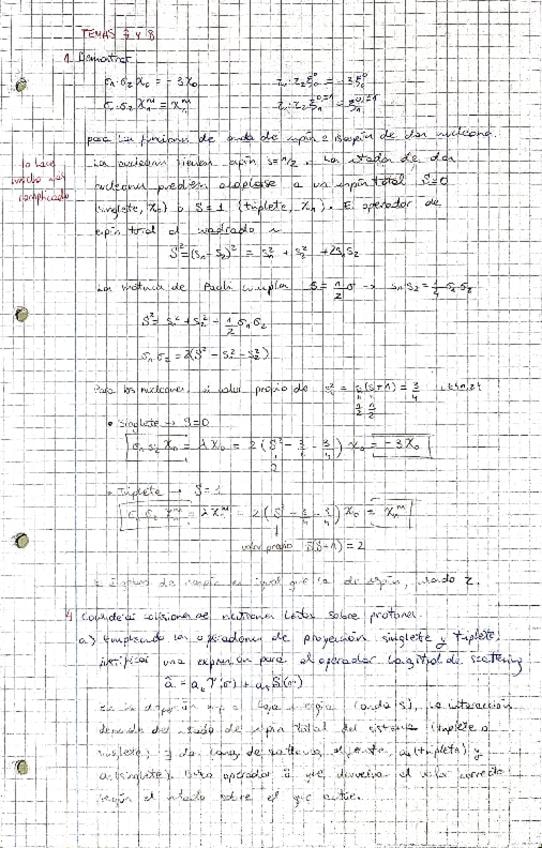 TEMAS 7 Y 8
1. Demostrar
σ₁·σ₂ χ₀ = -3χ₀   τ₁·τ₂ ξ₀⁰ = -3ξ₀⁰
σ₁·σ₂ χ₁ᵐ = χ₁ᵐ   τ₁·τ₂ ξ₁^{0,±1} = ξ₁^{0,±1}
para las funciones de onda de espín e isospín de dos nucleones.
Los nucleones tienen espín s=1/2. Los estados de dos
nucleones pueden acoplarse a un espín total S=0
(singlete, χ₀) o S=1 (triplete, χ₁). El operador de
espín total al cuadrado
lo hace
mucho más
complicado
S² = (s₁+s₂)² = s₁² + s₂² + 2s₁s₂
Las matrices de Pauli cumplen S = 1/2 σ → s₁s₂ = 1/4 σ₁σ₂
S² = s₁² + s₂² + 1/2 σ₁σ₂
σ₁σ₂ = 2(S² - s₁² - s₂²)
Para los nucleones, el valor propio de s² = s(s+1) = 3/4
1/2 1/2
• Singlete → S=0
σ₁σ₂ χ₀ = λχ₀ = 2(S² - 3/4 - 3/4) χ₀ = -3χ₀
• Triplete → S=1
σ₁σ₂ χ₁ᵐ = λχᵐ = 2(S² - 3/4 - 3/4) χ₀ = χ₁ᵐ
valor propio S(S+1) = 2
igual que de espín, usando τ.
4 Considerar colisiones de neutrones lentos sobre protones.
a) Empleando los operadores de proyección singlete y triplete,
justificar una expresión para el operador longitud de scattering
â = aₜ T(σ) + aₛ S(σ)
baja energía (onda s), la interacción
depende del estado de espín total del sistema (triplete o
singlete) de scattering aₜ (triplete) y
aₛ (singlete). operador que devuelva el valor correcto
según el estado sobre el que actúe.